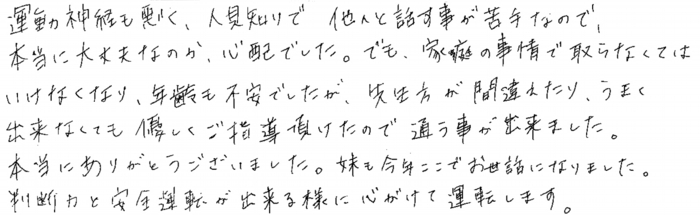 運動神経も悪く、人見知りで 他人と話す事が苦手なので、
本当に大丈夫なのか、心配でした。でも、家庭の事情で取らなくては
いけなくなり、年齢も不安でしたが、先生方が間違えたり、うまく
出来なくても優しくご指導頂けたので通う事が出来ました。
本当にありがとうございました。妹も今年ここでお世話になりました。
判断力と安全運転が出来る様に心がけて運転します。